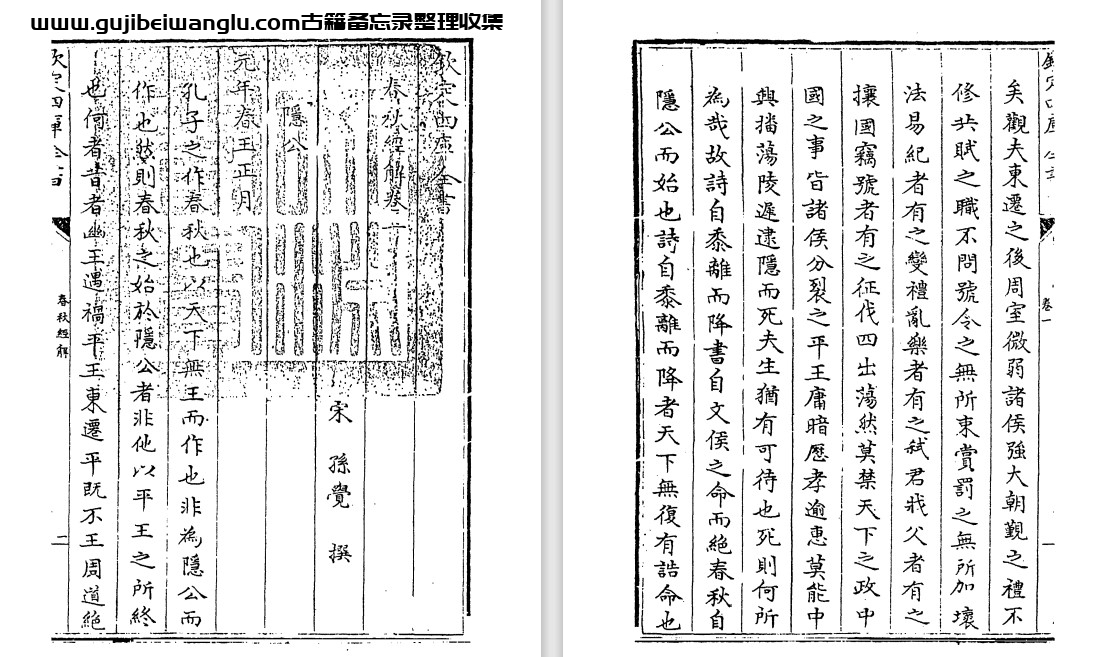 www.gujibeiwanglu.com古籍备忘录整理收集
欽定四庫全書
春秋經解卷一
宋 孫覺 撰
隱公
元年春王正月
孔子之作春秋也以天下無王而作也非為隱公而
作也然則春秋之始於隱公者非他以平王之所終
也何者昔者幽王遇禍平王東遷平既不王周道絶
欽定四庫全書 春秋經解 二
欽定四庫全書 卷一 一
矣觀夫東遷之後周室微弱諸侯強大朝覲之禮不
修共賦之職不問號令之無所束賞罰之無所加壞
法易紀者有之變禮亂樂者有之弒君戕父者有之
攘國竊號者有之征伐四出蕩然莫禁天下之政中
國之事皆諸侯分裂之平王庸暗歷孝逾惠莫能中
興播蕩陵遲逮隱而死夫生猶有可待也死則何所
為哉故詩自黍離而降書自文侯之命而絶春秋自
隱公而始也詩自黍離而降者天下無復有誥命也